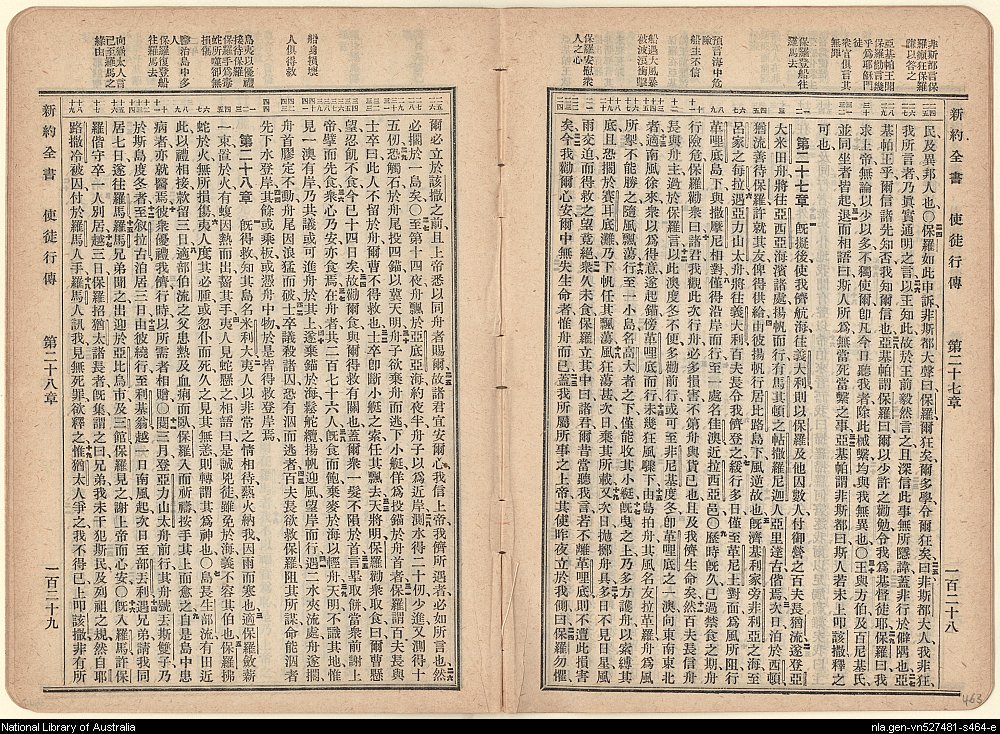 新約全書
使徒行傳
第二十七章
一百二十八
非斯都言保
羅癲狂保羅
謙以答之
亞基帕王聞
保羅勸言幾
乎爲耶穌門
徒
眾官俱言其
無罪
保羅登船往
羅馬去
預言海中危
險
船主不信
船遇大風暴
被波浪衝擊
保羅安慰眾
人之心
民及異邦人也〇保羅如此申訴非斯都大聲曰保羅爾狂矣爾多學令爾狂矣曰非斯都大人我非狂
我所言者乃真實通明之言以王知此故於王前毅然言之且深信此事無所隱諱蓋非行於僻隅也亞
基帕王乎爾信諸先知否我知爾信也亞基帕謂保羅曰爾以少許之勸勉令我爲基督徒耶保羅曰我
求上帝無論以少以多不獨使爾即凡今日聽我者除此械繫均與我無異也王與方伯及百尼基氏
並同坐者皆起退而相語曰斯人所爲無當死當繫之事亞基帕謂非斯都曰斯人若未上叩該撒釋之
可也
第二十七章 旣擬後使我儕航海往義大利則以保羅及他囚數人付御營之百夫長猶流遂登亞
大米田舟將往亞西亞海濱諸處揚帆而行有馬其頓之帖撒羅尼迦人亞里達古偕焉次日泊於西頓
猶流善待保羅許就其友俾得供給由彼揚帆行居比路島下風逆故也旣濟基利家旁非利亞之海至
呂家之每拉遇亞力山太舟將往義大利百夫長令我儕登之緩行多日僅至革尼土對面爲風所阻行
革哩底島下與撒摩尼相對僅得沿岸而行至一處名佳澳近拉西亞邑〇歷時旣久已過禁食之期舟
行險危保羅勸衆曰諸君我觀此次行舟必多損害不但舟與貨已也且及我儕生命矣然百夫長信舟
長與舟主過於保羅言以此澳度冬不便多勸前行或可至非尼基度冬卽革哩底之一澳向東南東北
者適南風徐來衆以爲得意遂起錨傍革哩底而行未幾狂風驟下由島拍舟其風名友拉革羅舟爲風
所掣不能勝之隨風飄蕩行至一小島名高大者之下僅能收其小艇旣曳之上乃多方護舟以索縛其
底且恐擱於賽耳底灘乃下帆任其飄蕩風狂蕩甚次日棄其所載又次日拋擲舟具多日不見日星風
雨交迫而得救之望竟絕衆久未食保羅立其中曰諸君爾曹昔當聽我言若不離革哩底則不遭此損害
矣今我勸爾心安爾中無失生命者惟舟而已蓋我所屬所事之上帝其使昨夜立於我側曰保羅勿懼
新約全書
使徒行傳
第二十八章
一百二十九
船身損壞
人俱得救
島夷以優禮
接待保羅
保羅手爲毒
蛇所噬卻無
損傷
醫治島中多
人
保羅復登船
往羅馬去
向猶太人言
已至羅馬之
緣由
爾必立於該撒之前且上帝悉以同舟者賜爾故諸君宜安爾心我信上帝我儕所遇者必如所言也然
必擱於一島矣〇至第十四夜舟飄於亞底亞海約夜半舟子以爲近岸測水得二十仞少進又測得十
五仞恐觸石於舟尾投四錨以冀天明舟子欲棄舟而逃下小艇佯爲投錨於舟首者保羅謂百夫長與
士卒曰此人不留於舟爾曹不得救也士卒卽斷小艇之索任其飄去天將明保羅勸衆取食曰爾曹懸
望忍飢不食今已十四日矣故勸爾食與爾得救有關也蓋爾衆一髮不隕於首言畢取餅當衆前謝上
帝擘而先食衆心乃安亦食焉在舟者共二百七十六人衆食而飽棄麥於海以輕舟天明不識其地惟
見一澳有岸乃共議或可進舟於其上遂棄錨於海鬆舵纜揚帆迎風望岸而行遇二水夾流處舟遂擱
舟首膠定不動舟尾因浪猛而破士卒議殺諸囚恐有泅而逃者百夫長欲救保羅阻其所謀命能泅者
先下水登岸其餘或乘板或憑舟中物於是皆得救登岸焉
第二十八章 旣得救知其島名米利大夷人以非常之情相待爇火納我因雨而寒也適保羅斂薪
一束置於火有蝮因熱而出齧其手夷人見蛇懸之相語曰是誠兇徒雖免於海義不容其生也保羅拂
蛇於火無所損傷夷人度其必腫或忽仆而死久之見其無恙則轉謂其爲神也〇島長部流有田近
此以禮相接款留三日適部伯流之父患熱及血痢而臥保羅入而祈禱按手其上而愈之自是島中患
病者亦就醫焉彼衆優禮我儕行時以所需者相贈〇三月登亞力山太舟前行其舟號丟斯雙子乃
於斯島度冬者至敘拉古泊居三日由彼繞行至利基翁越一日南風起次日至部丟利遇兄弟請我同
居七日遂往羅馬兄弟聞之出迎於亞比烏市及三館保羅見之謝上帝而心安〇旣入羅馬許保
羅偕守卒一人別居越三日保羅招猶太諸長者旣集謂之曰兄弟我未干犯斯民及列祖之規然自耶
路撒冷被囚付於羅馬人手羅馬人訊我見無死罪欲釋之惟猶太人爭之我不得已上叩該撒非有所
463
National Library of Australia
nla.gen-vn527481-s464-e